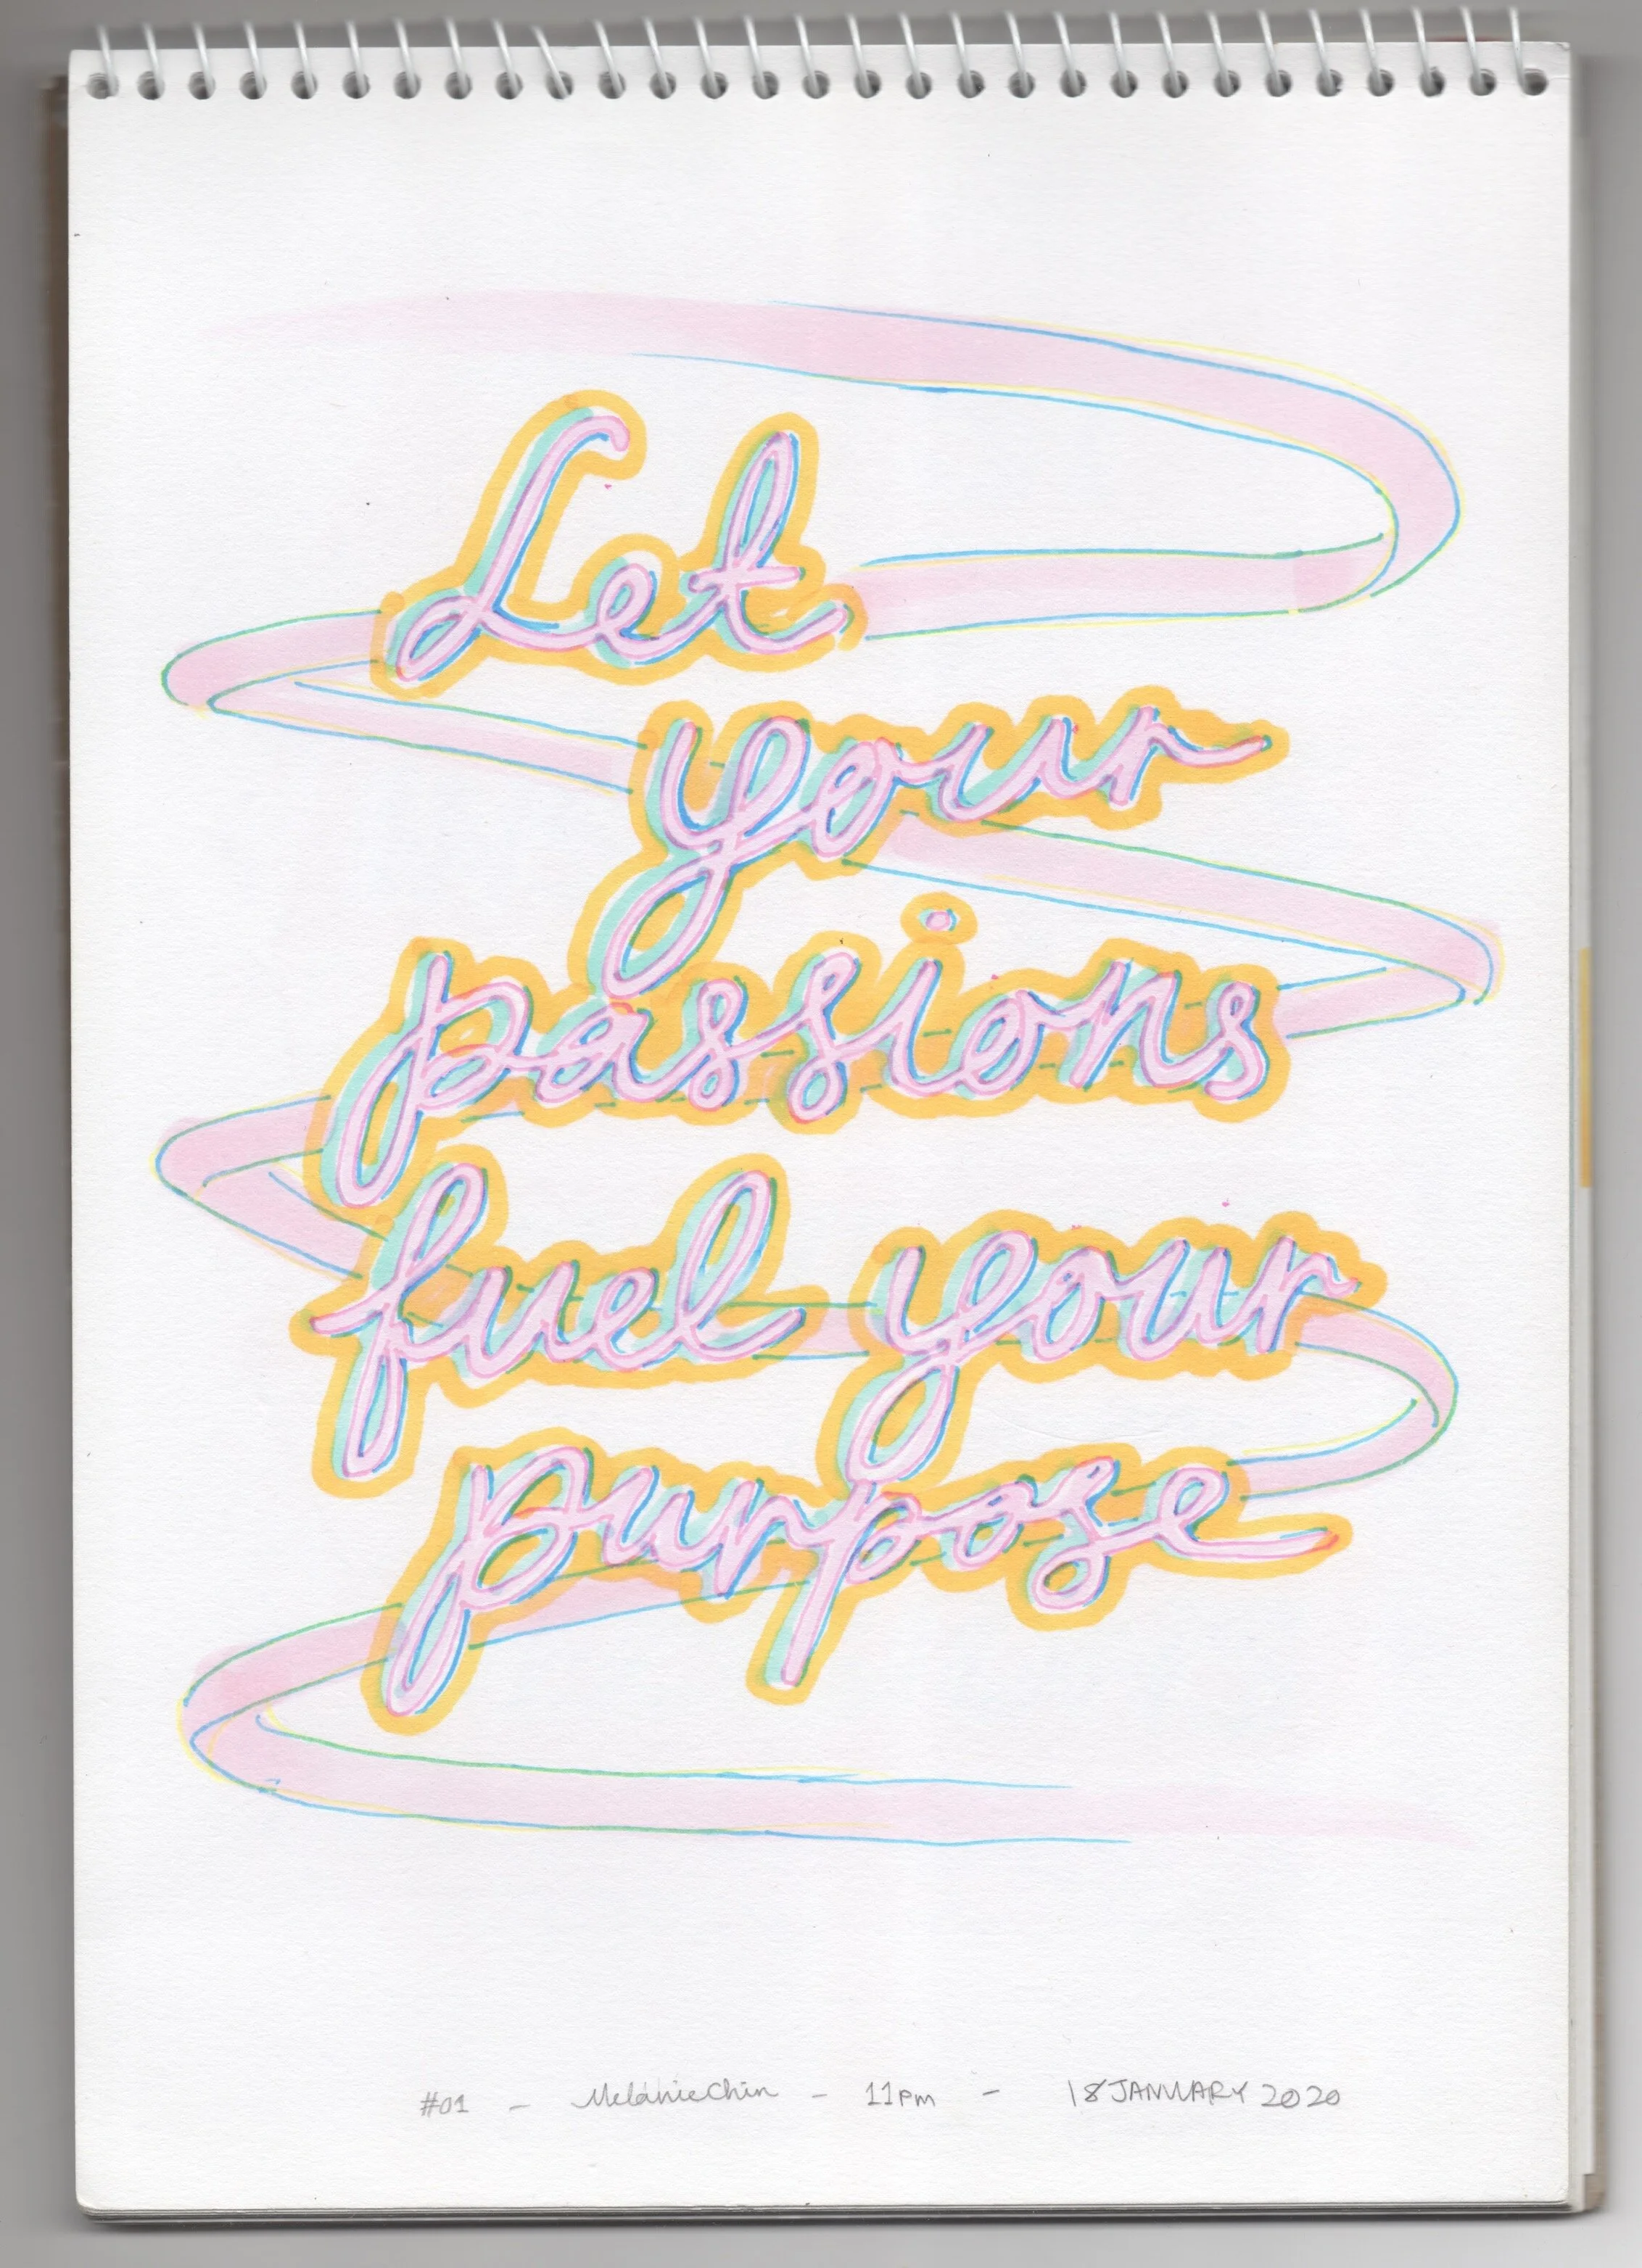 Let
your
passions
fuel your
purpose
#01 - Melanie Chin - 11pm - 18 JANUARY 2020